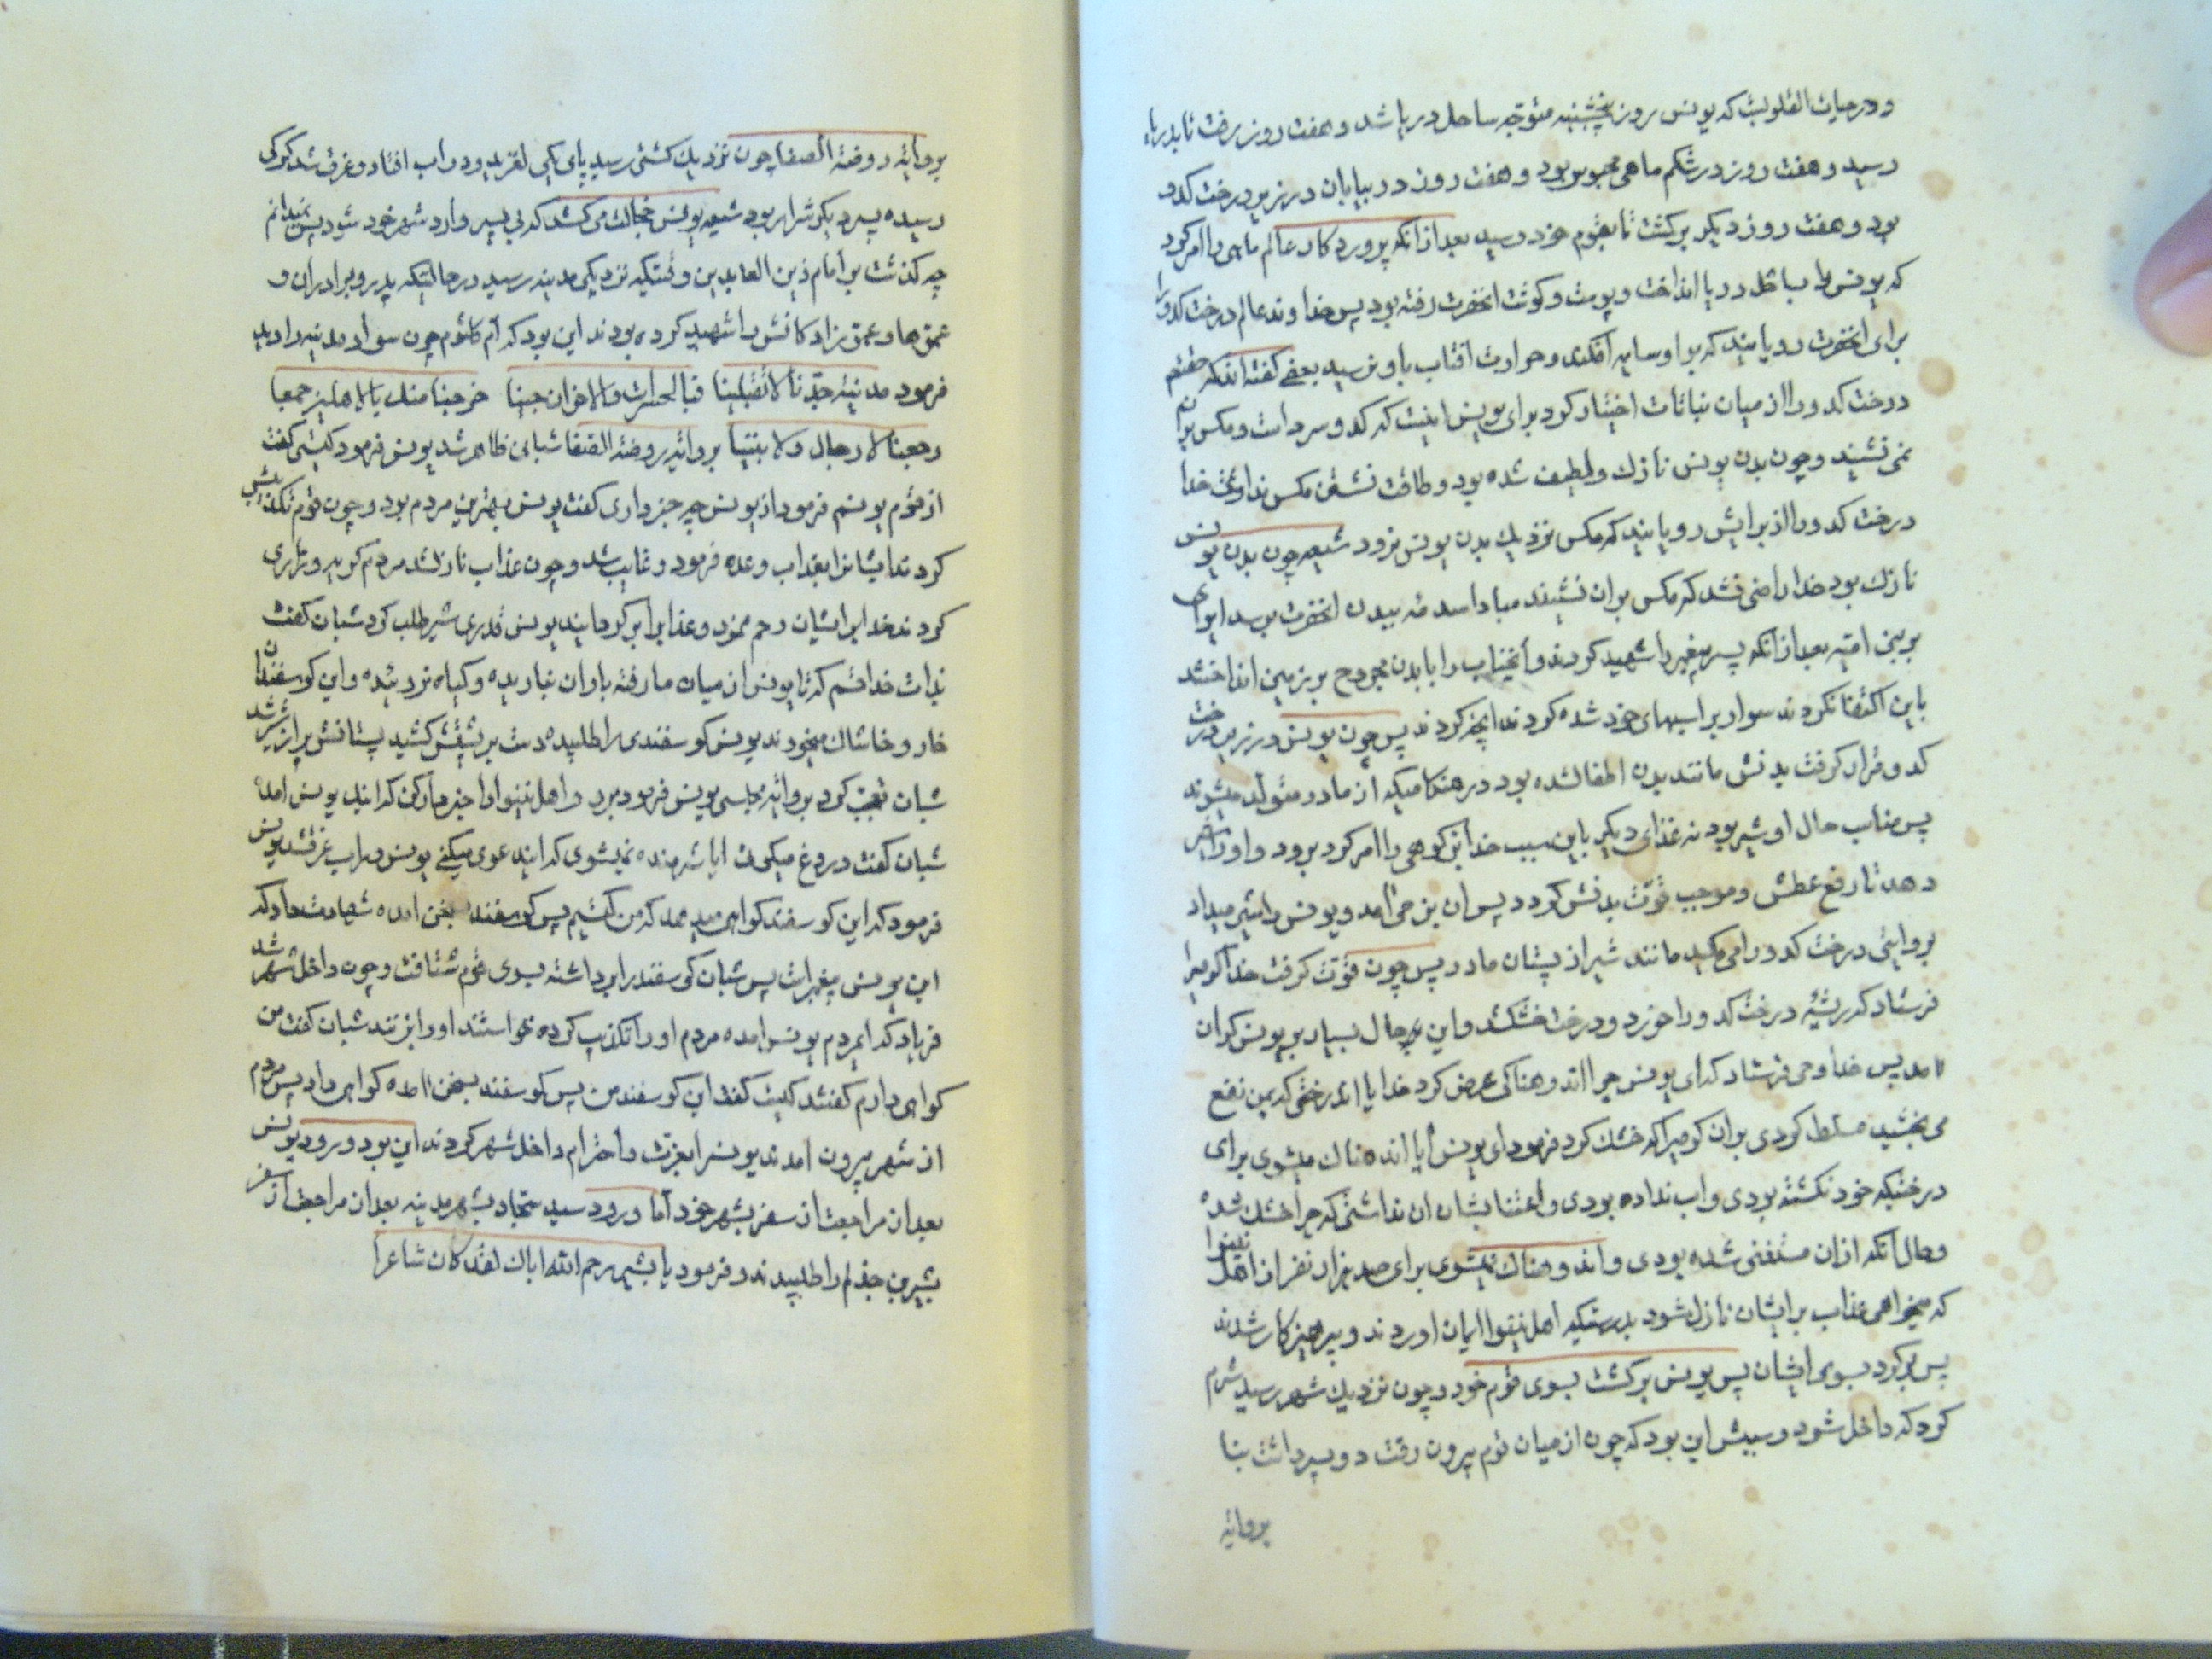 و در حیات القلوبست که یونس روز پنجشنبه متوجه ساحل دریا شد و هفت روز برفت تا بدریا
رسید و هفت روز در شکم ماهی محبوس بود و هفت روز در بیابان در زیر درخت کدو
بود و هفت روز دیگر برگشت تا بقوم خود رسید بعد از انکه پروردکار عالم ماهی را امر کرد
که یونس را بساحل دریا انداخت و پوست و کوشت انحضرت رفته بود پس خداوند عالم درخت کدو را
برای انحضرت رویانید که بر او سایه افکند و حرارت افتاب باو نرسد بعضی کفته اند که حقتعالی
درخت کدو را از میان نباتات اختیار کرد برای یونس اینست که کدو سرد است و مکس بر ان
نمی نشیند و چون بدن یونس نازک و لطیف شده بود و طاقت نشستن مکس نداشت خدا
درخت کدو را از برایش رویانید که مکس نزدیک بدن یونس نرود شیعه چون بدن یونس
نازک بود خدا راضی نشد که مکس بر ان نشیند مبادا صدمه ببدن انحضرت برسد ایوای
بر بنی امیه بعد از انکه پسر پیغمبر را شهید کردند و انجناب را با بدن مجروح بر زمین انداختند
باین اکتفا نکردند سوار بر اسبهای خود شده کردند انچه کردند پس چون یونس در زیر درخت
کدو قرار کرفت بدنش مانند بدن اطفال شده بود در هنکامیکه از مادر متولد میشوند
پس مناسب حال او شیر بود نه غذای دیکر باین سبب خدا بز کوهی را امر کرد برود و او را شیر
دهد تا رفع عطش و موجب قوت بدنش کردد پس ان بز می امد و یونس را شیر میداد
بروایتی درخت کدو را می مکید مانند شیر از پستان مادر پس چون قوت کرفت خدا کرمیرا
فرستاد که ریشه درخت کدو را خورد و درخت خشک شد و این حال بسیار بر یونس کران
امد پس خدا وحی فرستاد که ای یونس چرا اندوهناکی عرض کرد خدایا ان درختی که بمن نفع
می بخشید مسلط کردی بر ان کرمیرا که خشک کرد فرمود ای یونس ایا اندوهناک میشوی برای
درختیکه خود نکشته بودی و اب نداده بودی و اعتنا بشان ان نداشتی که چرا خشک شده
و حال انکه از ان مستغنی شده بودی و اندوهناک نمیشوی برای صد هزار نفر از اهل نینوا
که میخواهی عذاب بر ایشان نازل شود بدرستیکه اهل نینوا ایمان اوردند و پرهیزکار شدند
پس برکرد بسوی ایشان پس یونس برکشت بسوی قوم خود و چون نزدیک شهر رسید شرم
کرد که داخل شود و سببش این بود که چون از میان قوم بیرون رفت دو پسر داشت بنا
بروایة
بروایة روضة الصفا چون نزدیک کشتی رسید پای یکی لغزید و در اب افتاد و غرق شد کرکی
رسیده پسر دیکر شرا ربود شیعه یونس خجالت می کشد که بی پسر وارد شهر خود شود پس نمیدانم
چه کذشت بر امام زین العابدین وقتیکه نزدیکی مدینه رسید در حالتیکه پدر و برادران و
عموها و عمو زادکانش را شهید کرده بودند این بود که ام کلثوم چون سواد مدینه را دید
فرمود مدینة جدنا لا تقبلینا فبالحسرات و الاحزان جینا خرجنا منک بالاهلین جمعا
رجعنا لا رجال و لا بنینا بروایة روضة الصفا شبانی ظاهر شد یونس فرمود کیستی کفت
از قوم یونسم فرمود از یونس چه خبر داری کفت یونس بهترین مردم بود و چون قوم تکذیبش
کردند ایشانرا بعذاب وعده فرمود و غایب شد و چون عذاب نازل شد مردم کریه و زاری
کردند خدا بر ایشان رحم نمود و عذابرا برکردانید یونس قدری شیر طلب کرد شبان کفت
بذات خدا قسم که تا یونس از میان ما رفته باران نباریده و کیاه نروئیده و این کوسفندان
خار و خاشاک میخورند یونس کوسفندی را طلبیده دست بر پشتش کشید پستانش پر از شیر شد
شبان تعجب کرد بروایة مجلسی یونس فرمود برو اهل نینوا را خبردار کن که اینک یونس امده
شبان کفت دروغ میکوئی ایا شرمنده نمیشوی که این دعوی میکنی یونس در اب غرق شد یونس
فرمود که این کوسفند کواهی میدهد که من کیستم پس کوسفند بسخن امده شهادت داد که
این یونس پیغمبر است پس شبان کوسفند را برداشته بسوی قوم شتافت و چون داخل شهر شد
فریاد کرد ایمردم یونس امده مردم او را تکذیب کرده خواستند او را بزنند شبان کفت من
کواهی دارم کفتند کیست کفت این کوسفند من پس کوسفند بسخن امده کواهی داد پس مردم
از شهر بیرون امدند یونس را بعزت و احترام داخل شهر کردند این بود ورود یونس
بعد از مراجعت از سفر بشهر خود اما ورود سید سجاد بشهر مدینه بعد از مراجعت از سفر
بشیر بن جذلم را طلبیدند و فرمود یا بشیر رحم الله اباک لقد کان شاعرا